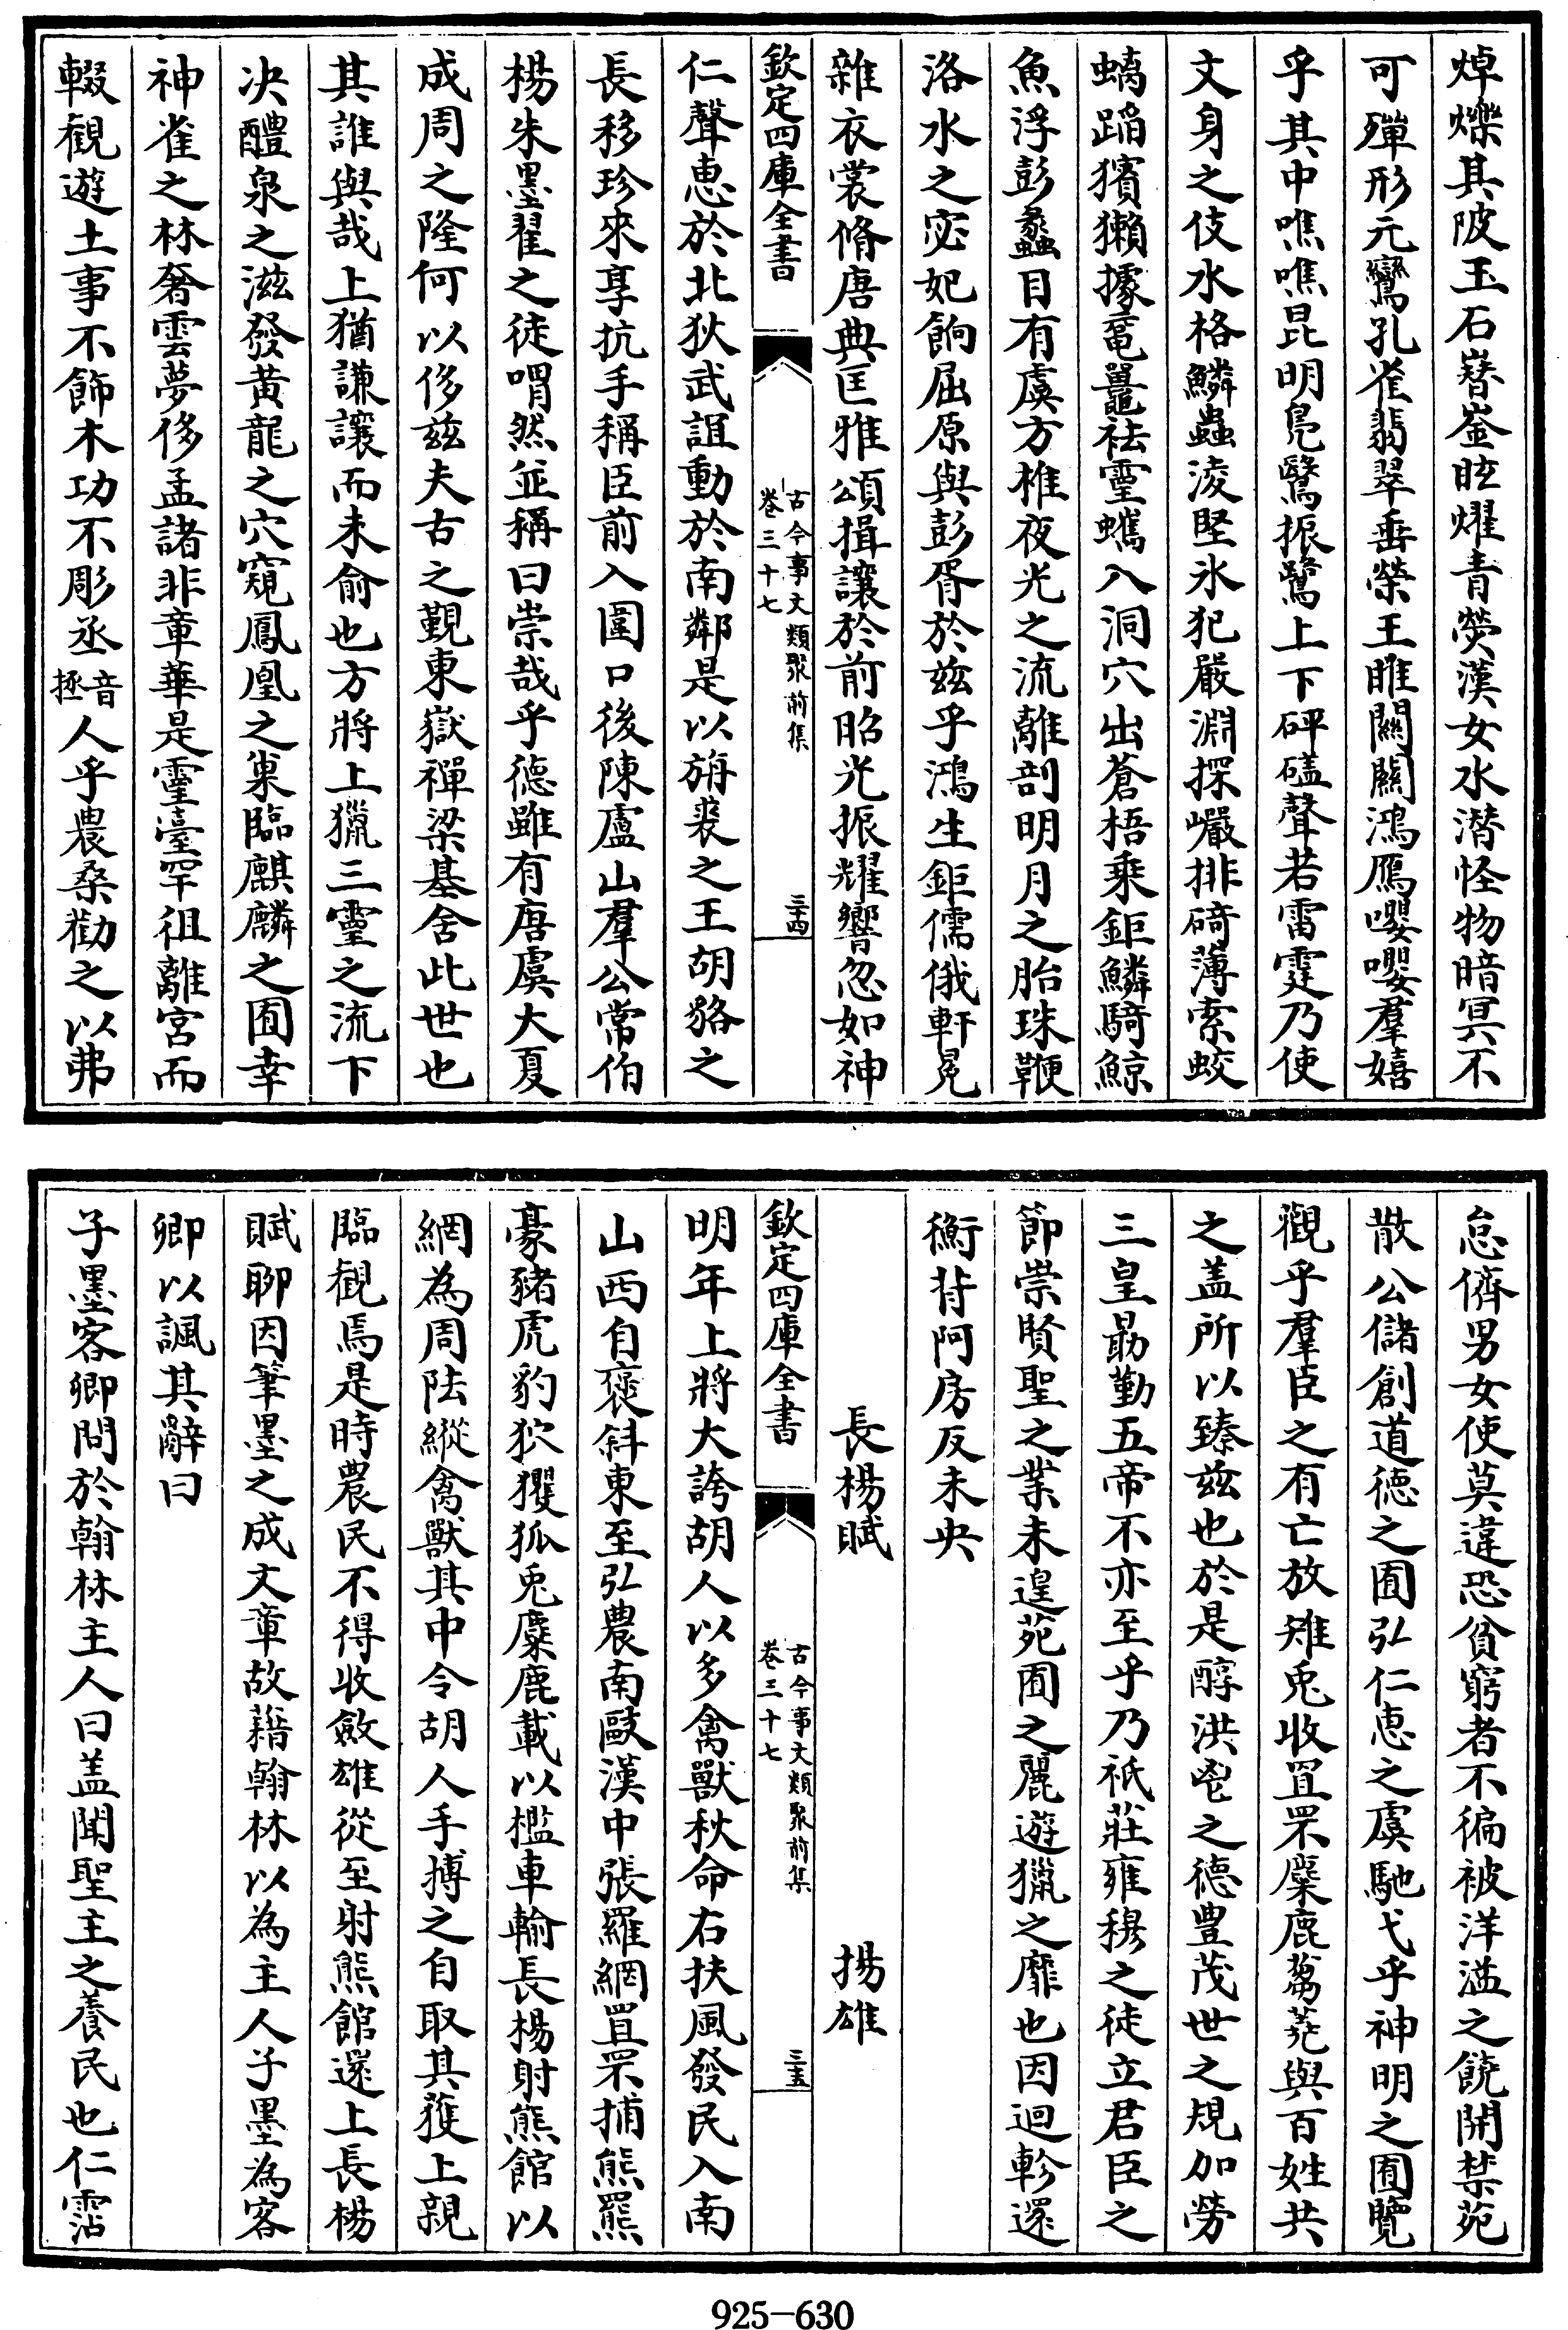 焯爍其陂玉石嶜崟眩燿青熒漢女水潜怪物暗冥不
可殫形元鸞孔雀翡翠垂榮王雎關關鴻鴈嚶嚶羣嬉
乎其中噍噍昆明鳧鷖振鷺上下砰磕聲若雷霆乃使
文身之伎水格鱗蟲淩堅氷犯嚴淵探巖排碕薄索蛟
螭蹈獱獺據黿鼉祛靈蠵入洞穴出蒼梧乘鉅鱗騎鯨
魚浮彭蠡目有虞方椎夜光之流離剖明月之胎珠鞭
洛水之宓妃餉屈原與彭胥於兹乎鴻生鉅儒俄軒冕
雜衣裳脩唐典匡雅頌揖讓於前昭光振耀響忽如神
欽定四庫全書
古今事文類聚前集
卷三十七
三十四
仁聲惠於北狄武誼動於南鄰是以旃裘之王胡貉之
長移珍來享抗手稱臣前入圍口後陳盧山羣公常伯
楊朱墨翟之徒喟然並稱曰崇哉乎德雖有唐虞大夏
成周之隆何以侈兹夫古之覲東嶽禪梁基舍此世也
其誰與哉上猶謙讓而未俞也方將上獵三靈之流下
决醴泉之滋發黄龍之穴窺鳳凰之巢臨麒麟之囿幸
神雀之林奢雲夢侈孟諸非章華是靈臺罕徂離宮而
輟觀遊土事不飾木功不彫丞音拯人乎農桑勸之以弗
怠儕男女使莫違恐貧窮者不徧被洋溢之饒開禁苑
散公儲創道德之囿弘仁惠之虞馳弋乎神明之囿覽
觀乎羣臣之有亡放雉兎收罝罘麋鹿芻蕘與百姓共
之盖所以臻兹也於是醇洪鬯之德豊茂世之規加勞
三皇朂勤五帝不亦至乎乃祇莊雍穆之徒立君臣之
節崇賢聖之業未遑苑囿之麗遊獵之靡也因迴軫還
衡背阿房反未央
長楊賦 揚雄
欽定四庫全書
古今事文類聚前集
卷三十七
三十五
明年上將大誇胡人以多禽獸秋命右扶風發民入南
山西自褒斜東至弘農南敺漢中張羅網罝罘捕熊羆
豪豬虎豹狖玃狐兎麋鹿載以檻車輸長楊射熊館以
網為周阹縱禽獸其中令胡人手搏之自取其獲上親
臨觀焉是時農民不得收斂雄從至射熊館還上長楊
賦聊因筆墨之成文章故藉翰林以為主人子墨為客
卿以諷其辭曰
子墨客卿問於翰林主人曰盖聞聖主之養民也仁霑
925-630